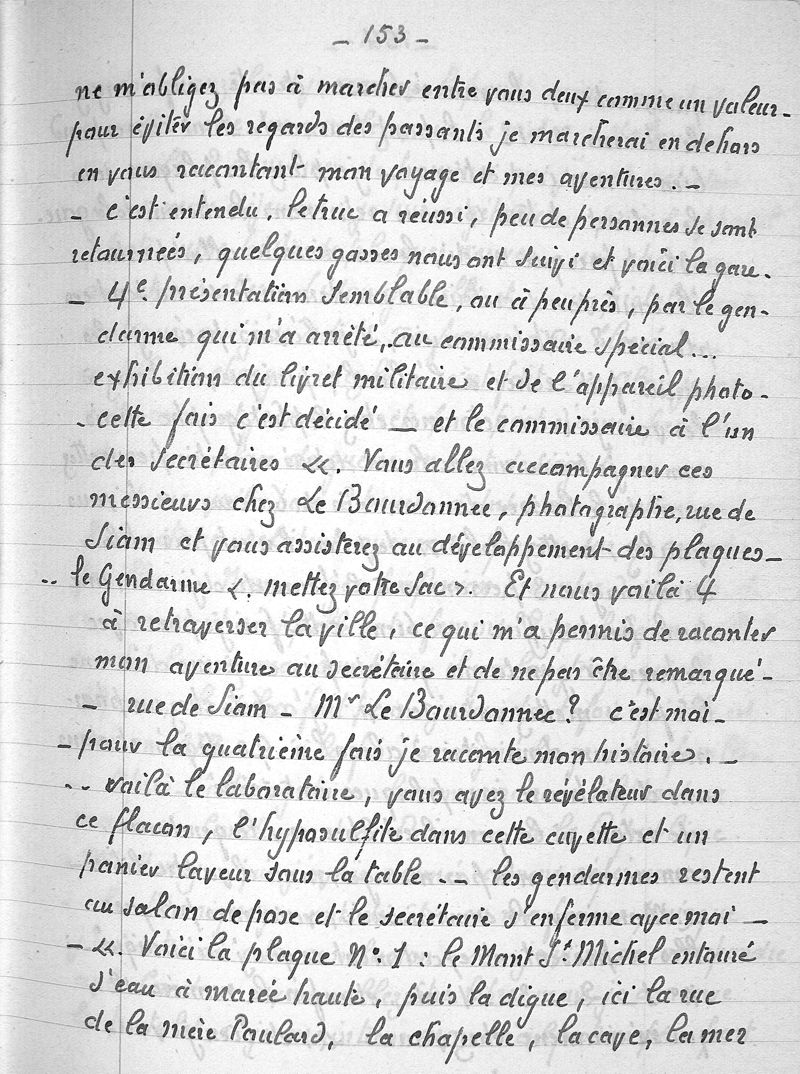 _ 153 _
ne m'obligez pas à marcher entre vous deux comme un voleur _
pour éviter les regards des passants je marcherai en dehors
en vous racontant mon voyage et mes aventures. _
_ c'est entendu. le truc a réussi, peu de personnes se sont
retournées, quelques gosses nous ont suivi et voici la gare.
_ 4e. présentation semblable, ou à peu près, par le gen-
darme qui m'a arrêté, au commissaire spécial...
exhibition du livret militaire et de l'appareil photo -
- cette fois c'est décidé _ et le commissaire à l'un
des secrétaires «. Vous allez accompagner ces
messieurs chez Le Bourdonnec, photographe, rue de
Siam et vous assisterez au développement des plaques _
.. le Gendarme <. mettez votre sac >. Et nous voilà 4
à retraverser la ville, ce qui m'a permis de raconter
mon aventure au secrétaire et de ne pas être remarqué -
_ rue de Siam _ Mr Le Bourdonnec ? c'est moi _
_ pour la quatrième fois je raconte mon histoire. _
.. voilà le laboratoire, vous avez le révélateur dans
ce flacon, l'hyposulfite dans cette cuvette et un
panier laveur sous la table -- les gendarmes restent
au salon de pose et le secrétaire s'enferme avec moi _
_ «. Voici la plaque No. 1 : le Mont St Michel entouré
d'eau à marée haute, puis la digue, ici la rue
de la mère Poulard, la chapelle, la cave, la mer